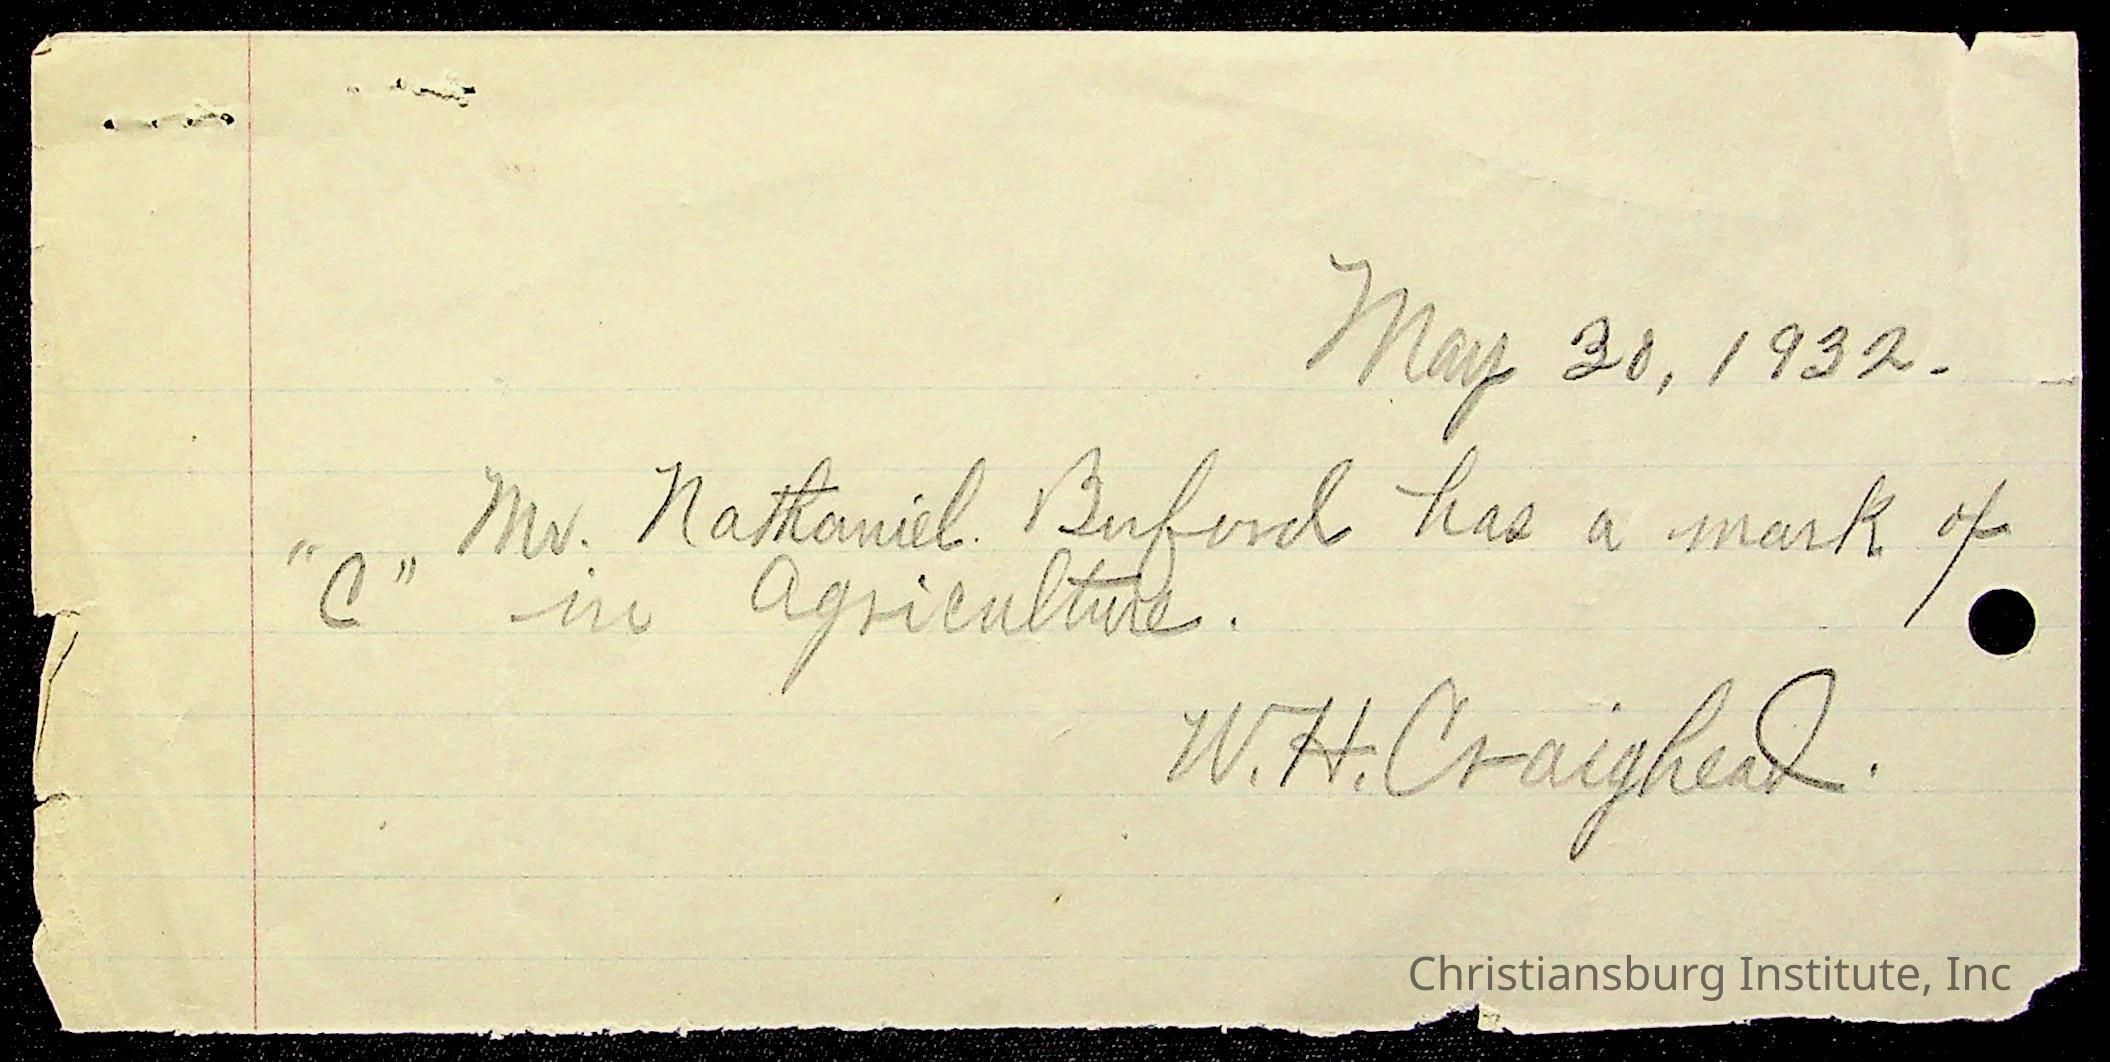 May 30, 1932.
Mr. Nathaniel. Buford has a mark of
"C" in Agriculture.
W. H. Craighead.
Christiansburg Institute, Inc